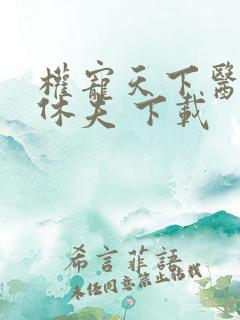 權寵天下醫
休夫 下載
希言菲語
未經同意禁止轉載